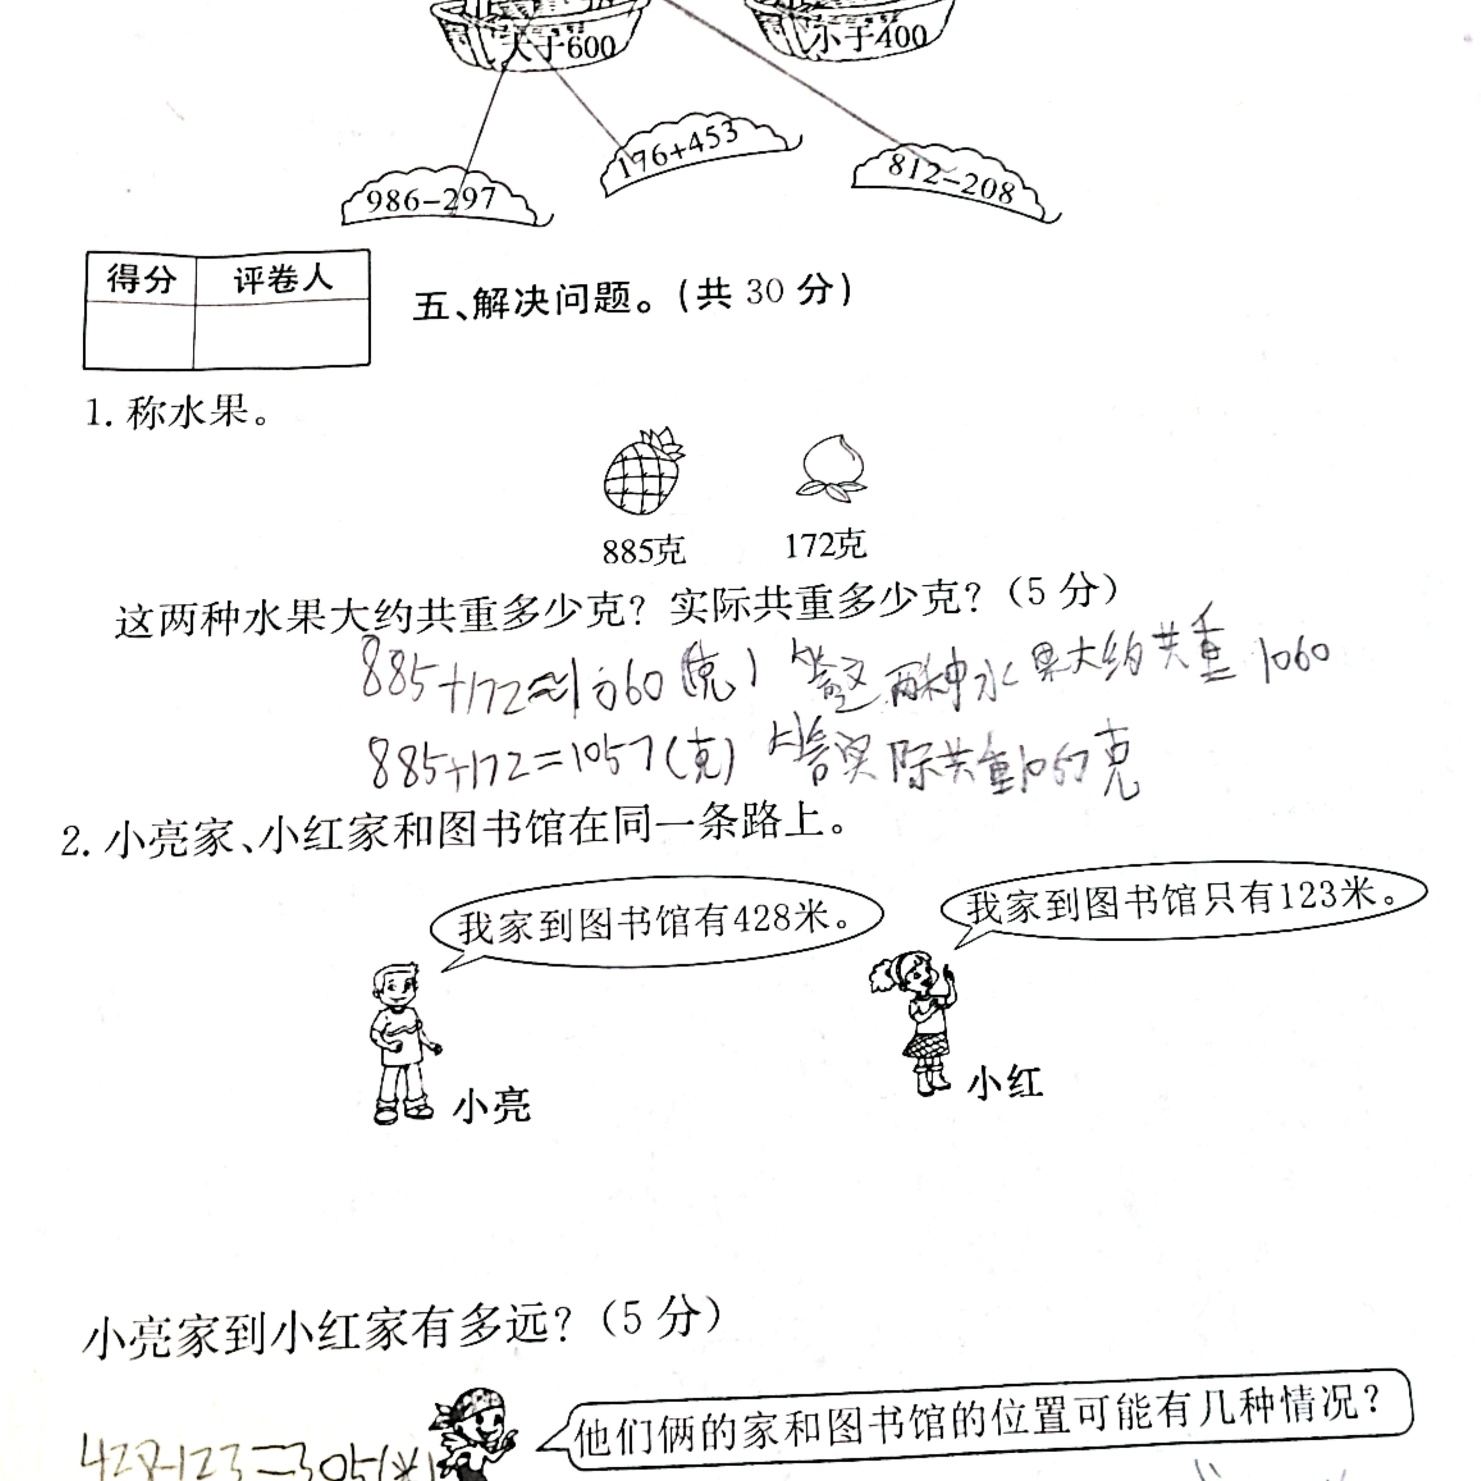 大于600 小于400
176+453
986-297 812-208
得分 评卷人
五、解决问题。(共 30 分)
1. 称水果。
885克 172克
这两种水果大约共重多少克？实际共重多少克？(5 分)
885+172≈1060(克) 答这两种水果大约共重1060
885+172=1057(克) 答实际共重1057克
2. 小亮家、小红家和图书馆在同一条路上。
我家到图书馆有428米。 我家到图书馆只有123米。
小亮 小红
小亮家到小红家有多远？(5 分)
他们俩的家和图书馆的位置可能有几种情况？
428-123=305(米)